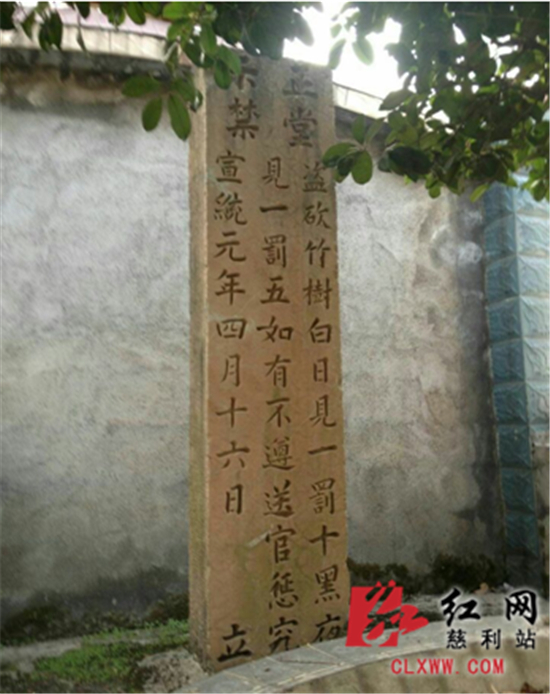 正堂
示禁
盗砍竹樹白日見一罰十黑夜
見一罰五如有不遵送官懲究
宣統元年四月十六日 立
红网
慈利站
CLXWW.COM